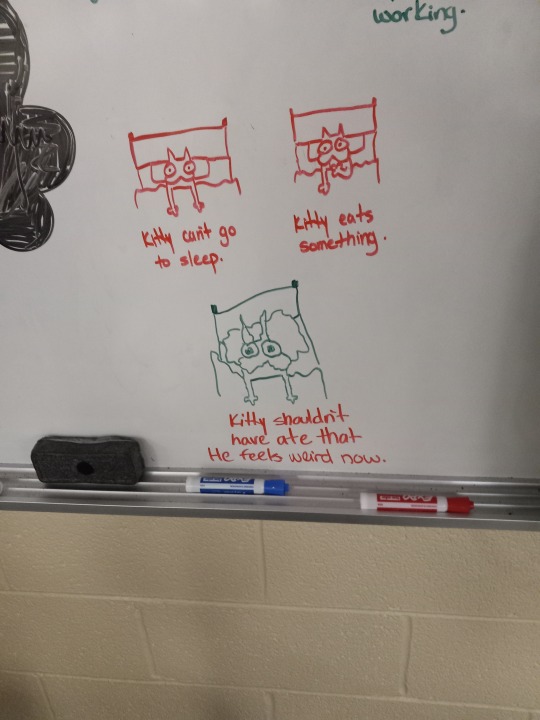 working.
Kitty can't go
to sleep.
Kitty eats
something.
Kitty shouldn't
have ate that
He feels weird now.